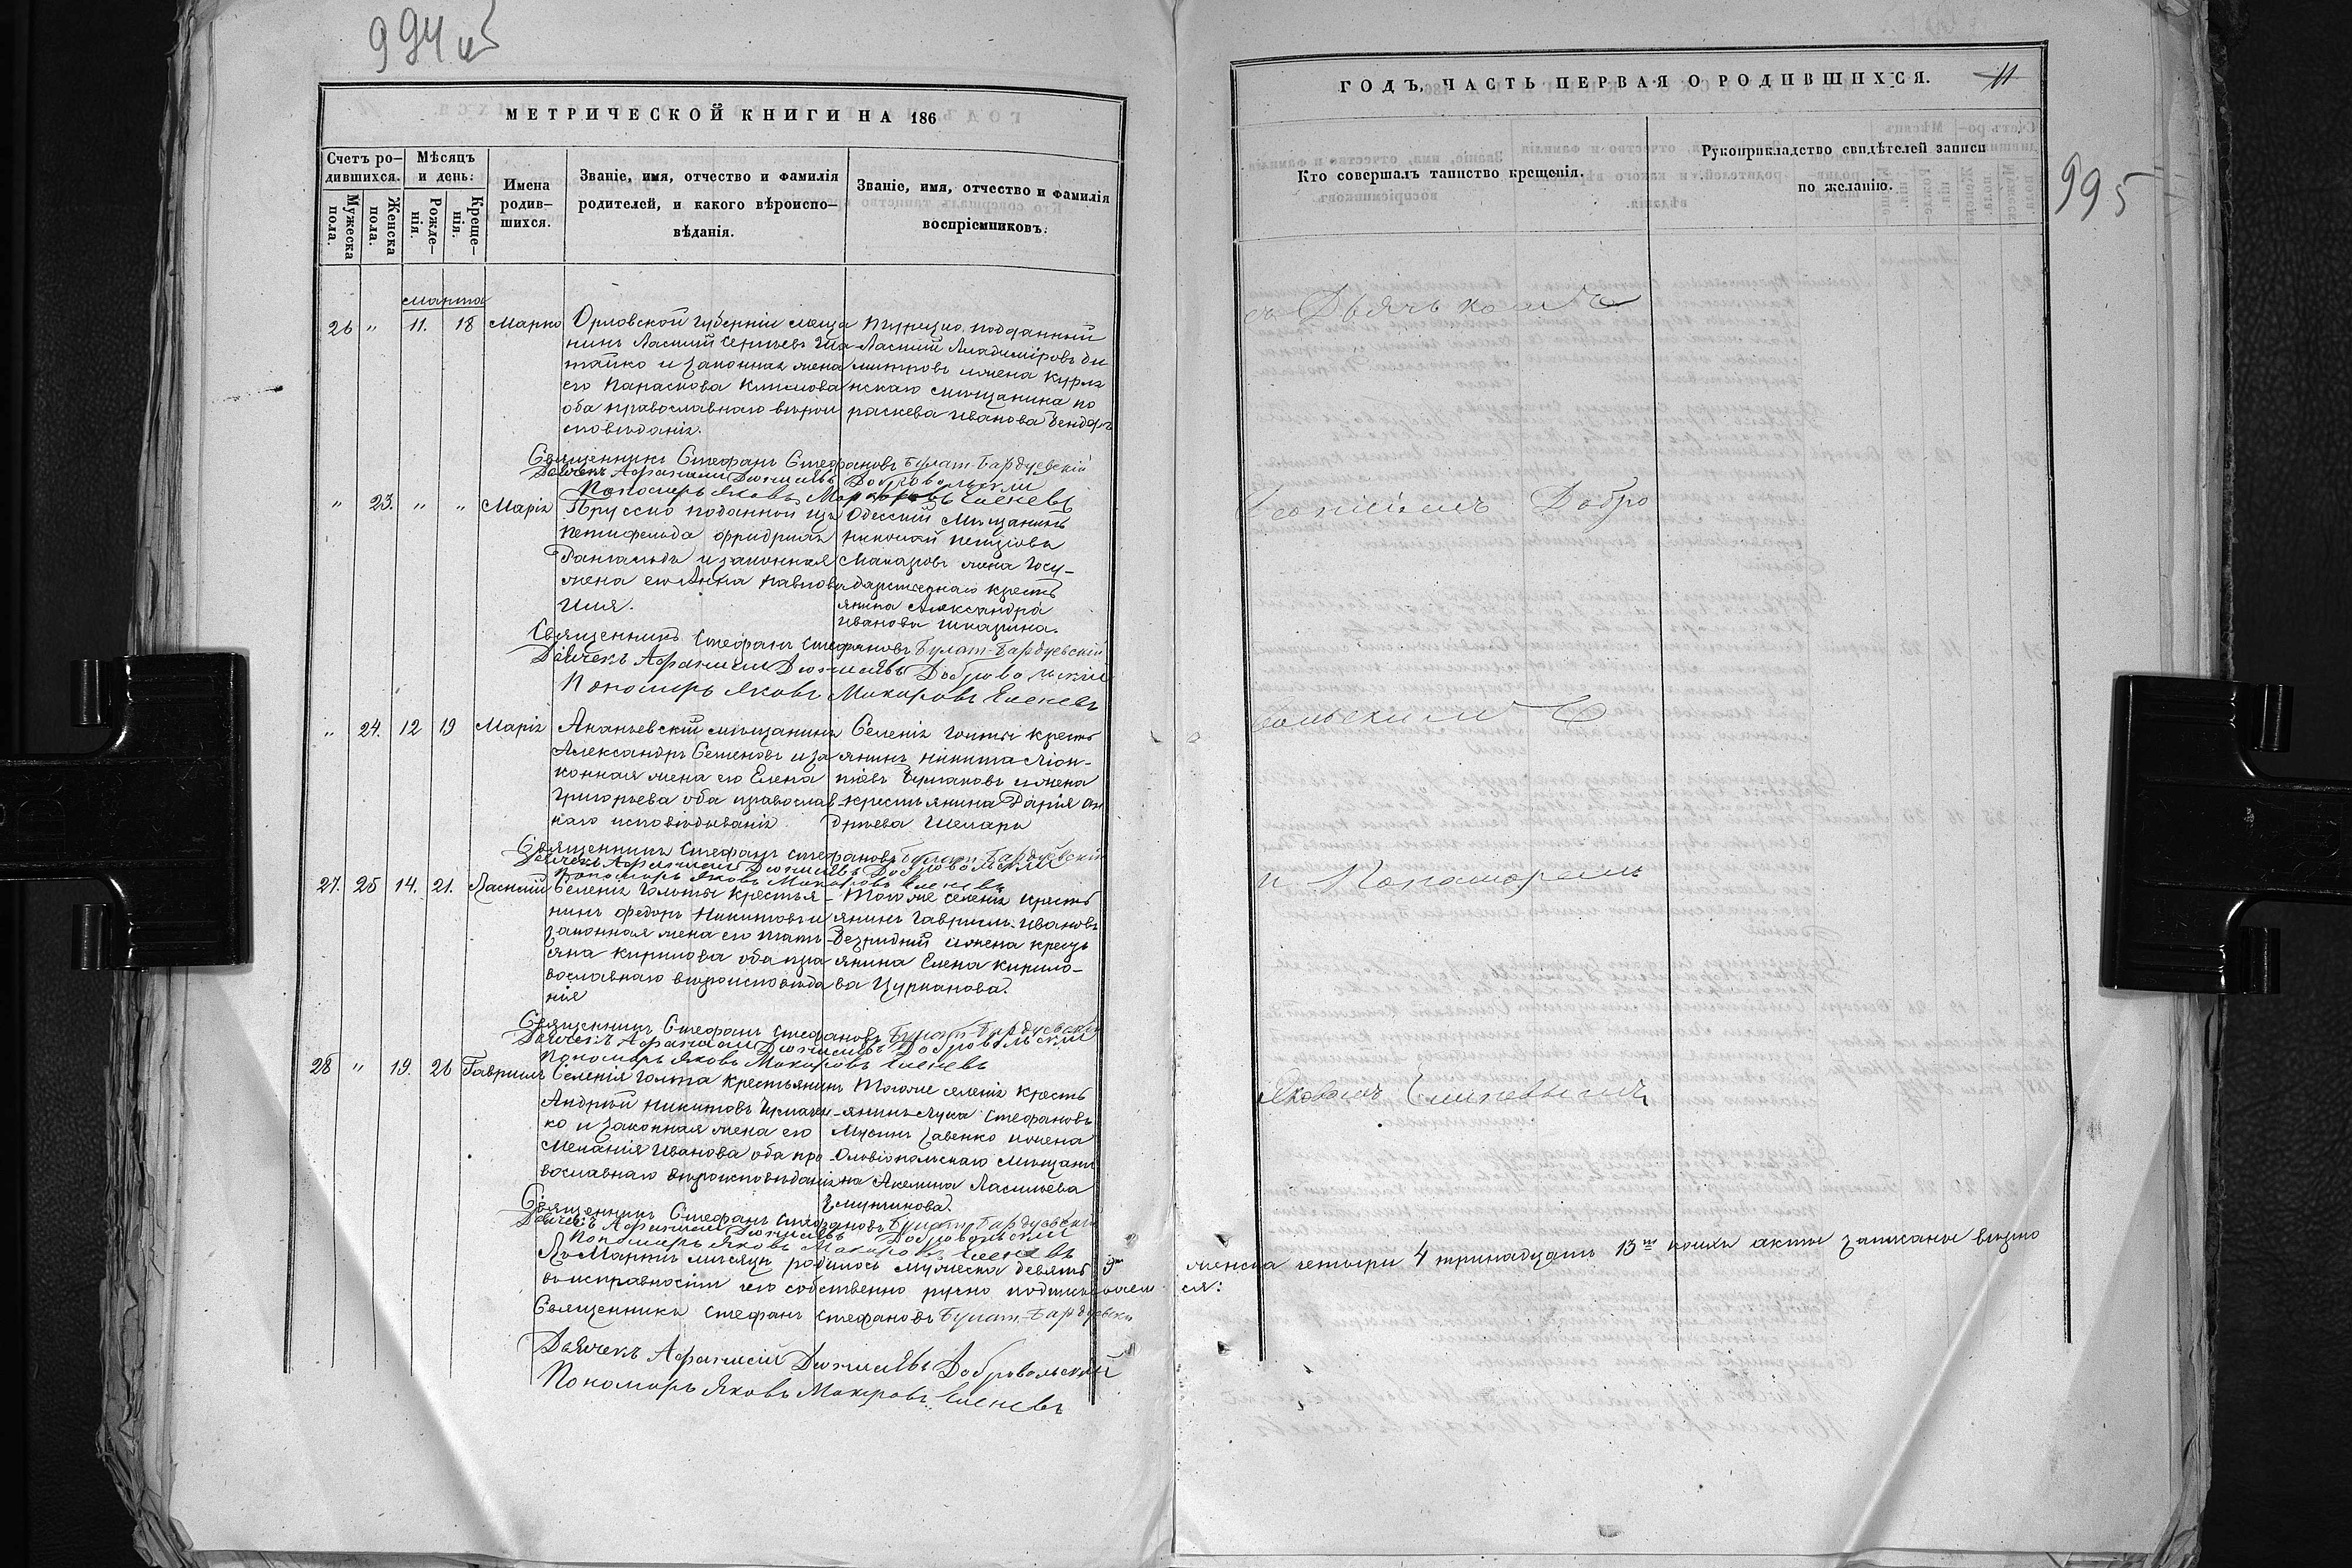 994 об
МЕТРИЧЕСКОЙ КНИГИ НА 186
Счетъ родившихся.
Мужеска пола.
Женска пола.
Мѣсяцъ и день:
Рожденія.
Крещенія.
Имена родившихся.
Званіе, имя, отчество и фамилія родителей, и какого вѣроисповѣданія.
Званіе, имя, отчество и фамилія воспріемниковъ.
марта
26 " 11. 18 Марко
Орловской губерніи меща
нинъ Василій Сергѣевъ
и законная жена
его Параскова Климова
оба православнаго вѣрои
сповѣданія.
Турецко подданный
Василій Владиміровъ Ди
митровъ и жена Курля
нскаго мѣщанина Па
раскева Иванова
Священникъ Стефанъ Стефановъ Булат-Бардуевскій
Дьячекъ Афанасій Добровольскій
Пономарь Яковъ Макаровъ
" 23. " " Марія
Прусско поданной изъ
Фридрихъ
и законная
жена его Анна Павлова
Одесскій Мѣщанинъ
Николай
Макаровъ жена Госу-
дарственнаго кресть
янина Александра
Иванова
Священникъ Стефанъ Стефановъ Булат-Бардуевскій
Дьячекъ Афанасій Добровольскій
Пономарь Яковъ Макаровъ
" 24. 12 19 Марія
Ананьевскій мѣщанинъ
Александръ Семеновъ и за
конная жена его Елена
Григорьева оба православ
наго исповѣдыванія
Селенія Голты кресть
янинъ Никита
и жена
крестьянина Дарія Ан
дрѣева
Священникъ Стефанъ Стефановъ Булат-Бардуевскій
Дьячекъ Афанасій Добровольскій
Пономарь Яковъ Макаровъ
27. 25 14. 21. Василій
Селенія Голты крестья-
нинъ Федоръ Никитовъ и
законная жена его Тать
яна Кирилова оба пра
вославнаго вѣроисповѣда
нія
Тогоже селенія кресть
янинъ Гавриилъ Ивановъ
Безридный и жена крест
янина Елена Кирило-
ва Цурканова.
Священникъ Стефанъ Стефановъ Булат-Бардуевскій
Дьячекъ Афанасій Добровольскій
Пономарь Яковъ Макаровъ
28 " 19. 26 Гавриилъ
Селенія Голта крестьянинъ
Андрѣй Никитовъ
ко и законная жена его
Меланія Иванова оба пра
вославнаго вѣроисповѣданія
Тогоже селенія кресть
янинъ Лука Стефановъ
и жена
Ольвіопольскаго мѣщани
на Акелина Васильева
Священникъ Стефанъ Стефановъ Булат-Бардуевскій
Дьячекъ Афанасій Добровольскій
Пономарь Яковъ Макаровъ
Въ Мартѣ мѣсяцѣ родилось мужеска девять 9
въ исправности чего собственно ручно подписываем
Священникъ Стефанъ Стефановъ Булат-Бардуевскій
Дьячекъ Афанасій Добровольскій
Пономарь Яковъ Макаровъ
ГОДЪ, ЧАСТЬ ПЕРВАЯ О РОДИВШИХСЯ.
11
995
Кто совершалъ таинство крещенія.
Рукоприкладство свидѣтелей записи по желанію.
съ Дьячькомъ
Добро
вольскимъ
и Пономаремъ
Яковомъ
женска четыри 4 тринадцать 13 коихъ акты записаны
ся: